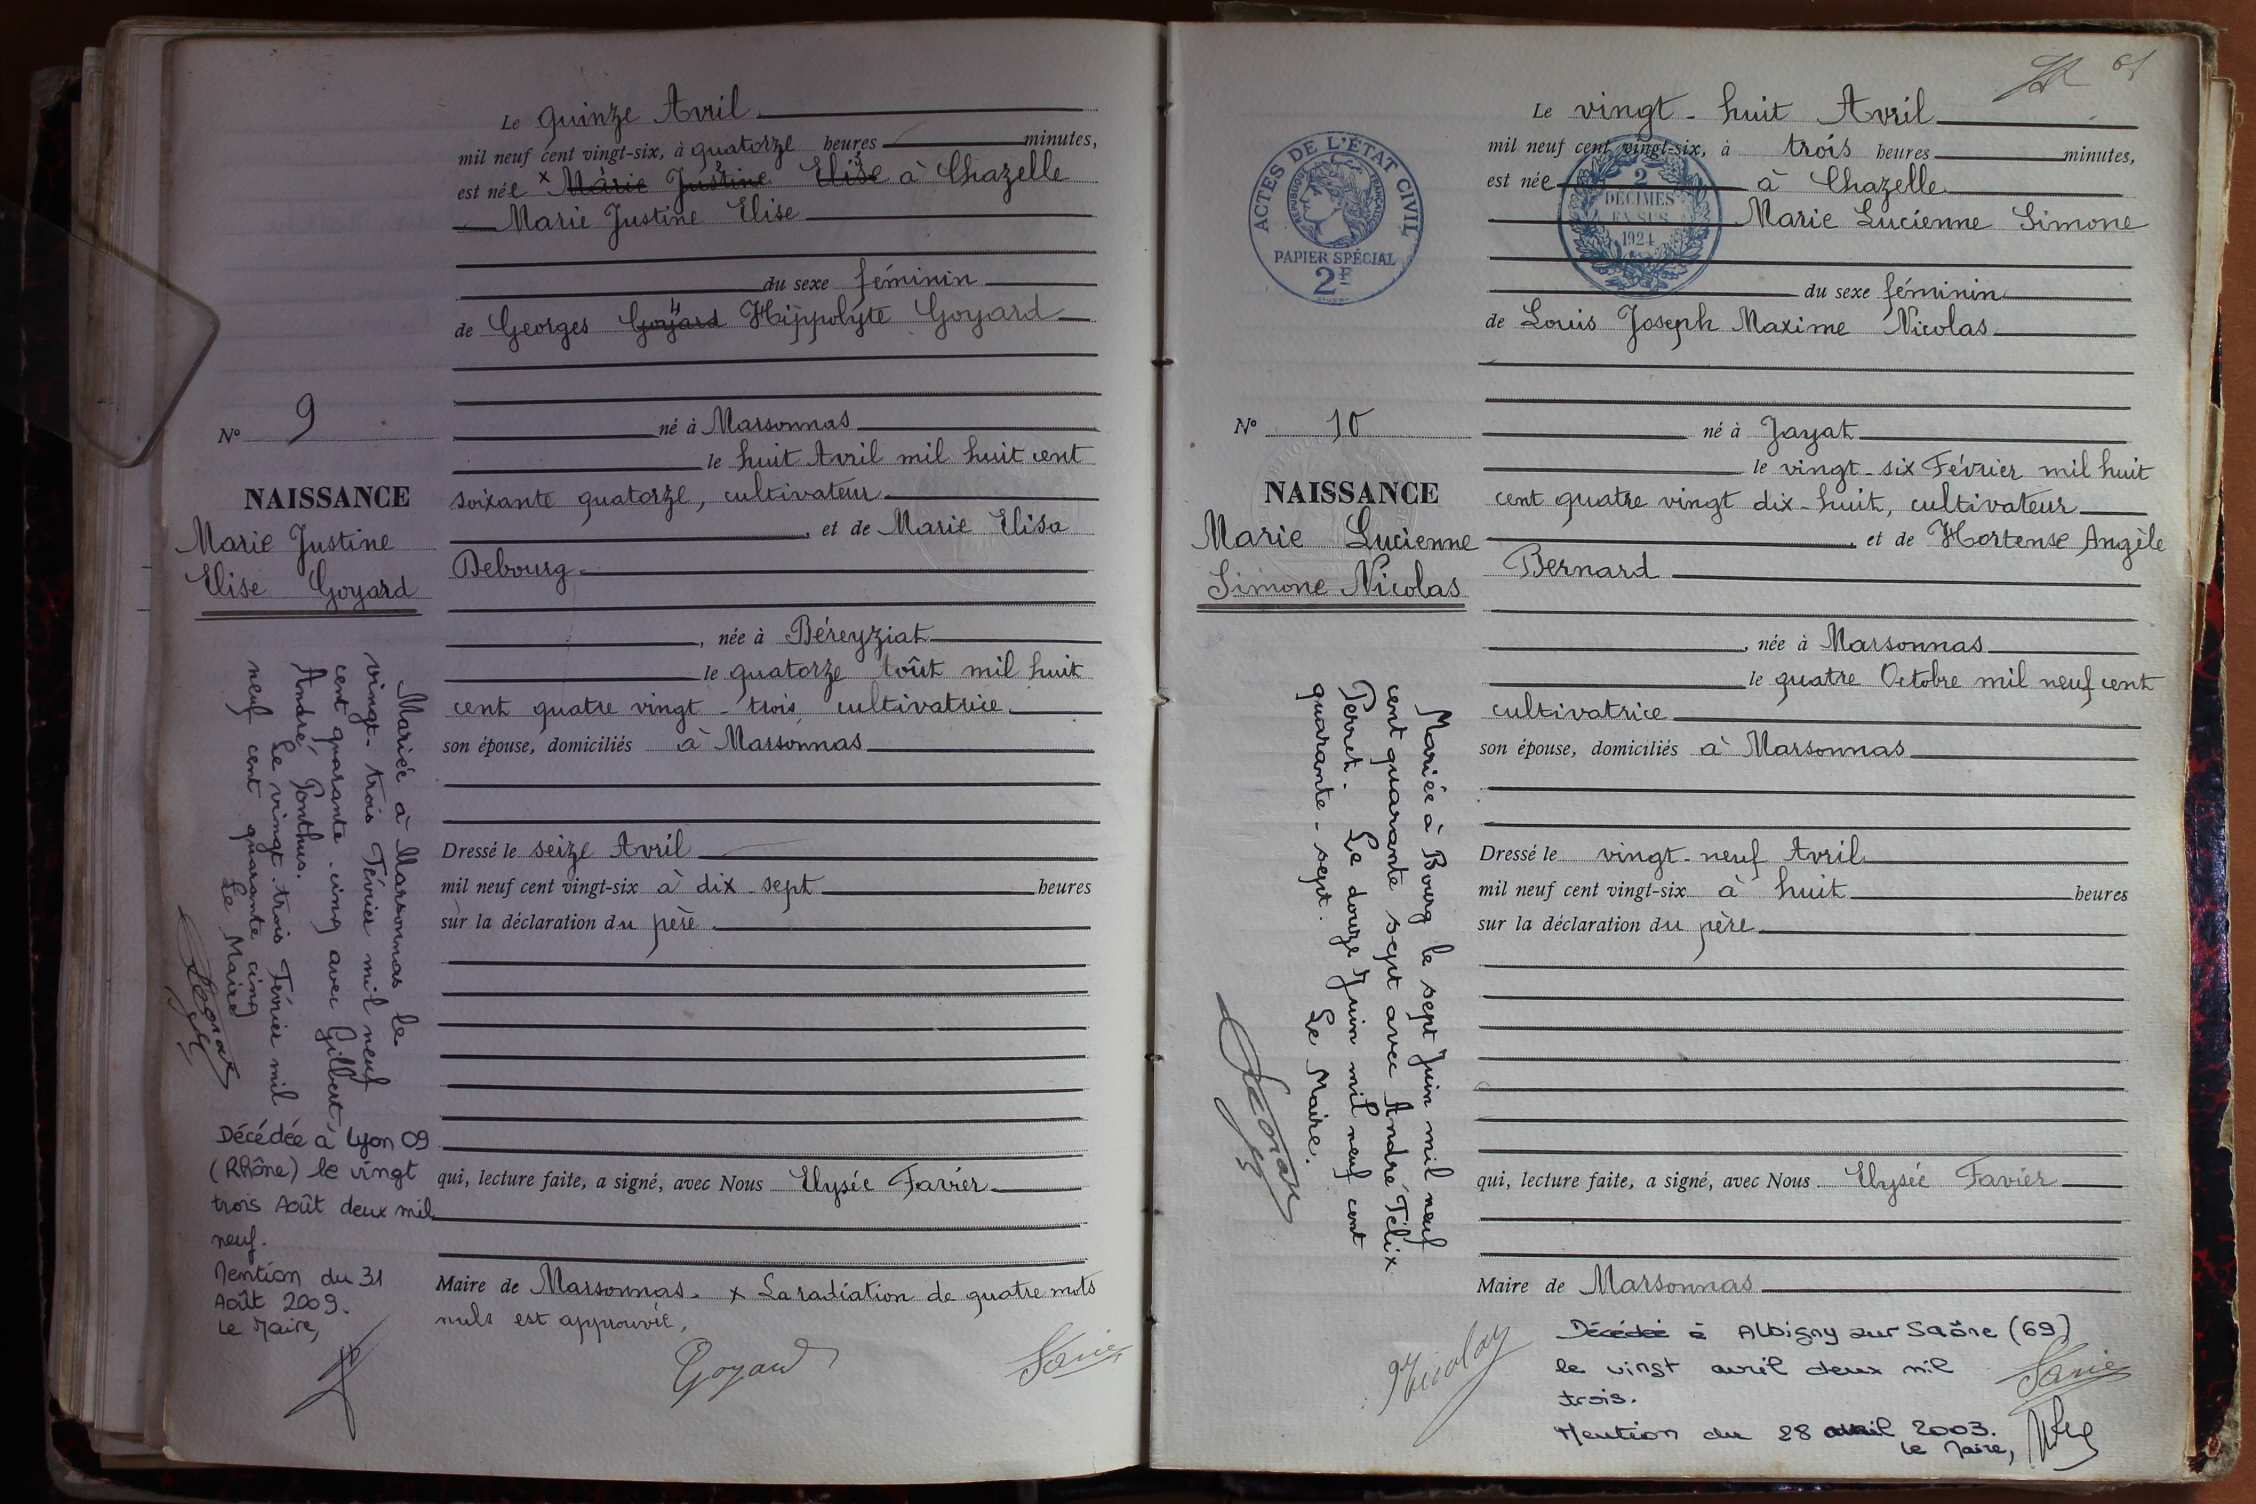 Le quinze Avril
mil neuf cent vingt-six, à quatorze heures minutes,
est née x Marie Justine Elise à Chazelle
Marie Justine Elise
du sexe féminin
de Georges Goyard Hippolyte Goyard
né à Marsonnas
le huit Avril mil huit cent
soixante quatorze, cultivateur
, et de Marie Elisa
Debourg
, née à Béreyziat
le quatorze Août mil huit
cent quatre vingt-trois, cultivatrice
son épouse, domiciliés à Marsonnas
Dressé le seize Avril
mil neuf cent vingt-six à dix-sept heures
sur la déclaration du père
qui, lecture faite, a signé, avec Nous Elysée Favier
Maire de Marsonnas. x La radiation de quatre mots
nuls est approuvée,
Goyard
Favier
N° 9
NAISSANCE
Marie Justine
Elise Goyard
Mariée à Marsonnas le
vingt-trois Février mil neuf
cent quarante-cinq avec Gilbert,
André, Ponthus.
Le vingt-trois Février mil
neuf cent quarante cinq
Le Maire
Décédée à Lyon 09
(Rhône) le vingt
trois Août deux mil
neuf.
Mention du 31
Août 2009.
Le Maire,
61
Le vingt-huit Avril
mil neuf cent vingt-six, à trois heures minutes,
est née à Chazelle
Marie Lucienne Simone
du sexe féminin
de Louis Joseph Maxime Nicolas
né à Jayat
le vingt-six Février mil huit
cent quatre vingt dix-huit, cultivateur
, et de Hortense Angèle
Bernard
, née à Marsonnas
le quatre Octobre mil neuf cent
cultivatrice
son épouse, domiciliés à Marsonnas
Dressé le vingt-neuf Avril
mil neuf cent vingt-six à huit heures
sur la déclaration du père
qui, lecture faite, a signé, avec Nous Elysée Favier
Maire de Marsonnas
Nicolas
Favier
Décédée à Albigny sur Saône (69)
le vingt avril deux mil
trois.
Mention du 28 avril 2003.
Le Maire,
ACTES DE L'ÉTAT CIVIL
RÉPUBLIQUE FRANÇAISE
PAPIER SPÉCIAL
2F
2
DÉCIMES
EN SUS
1924
N° 10
NAISSANCE
Marie Lucienne
Simone Nicolas
Mariée à Bourg le sept Juin mil neuf
cent quarante sept avec André Félix
Perret. Le douze Juin mil neuf cent
quarante-sept. Le Maire.